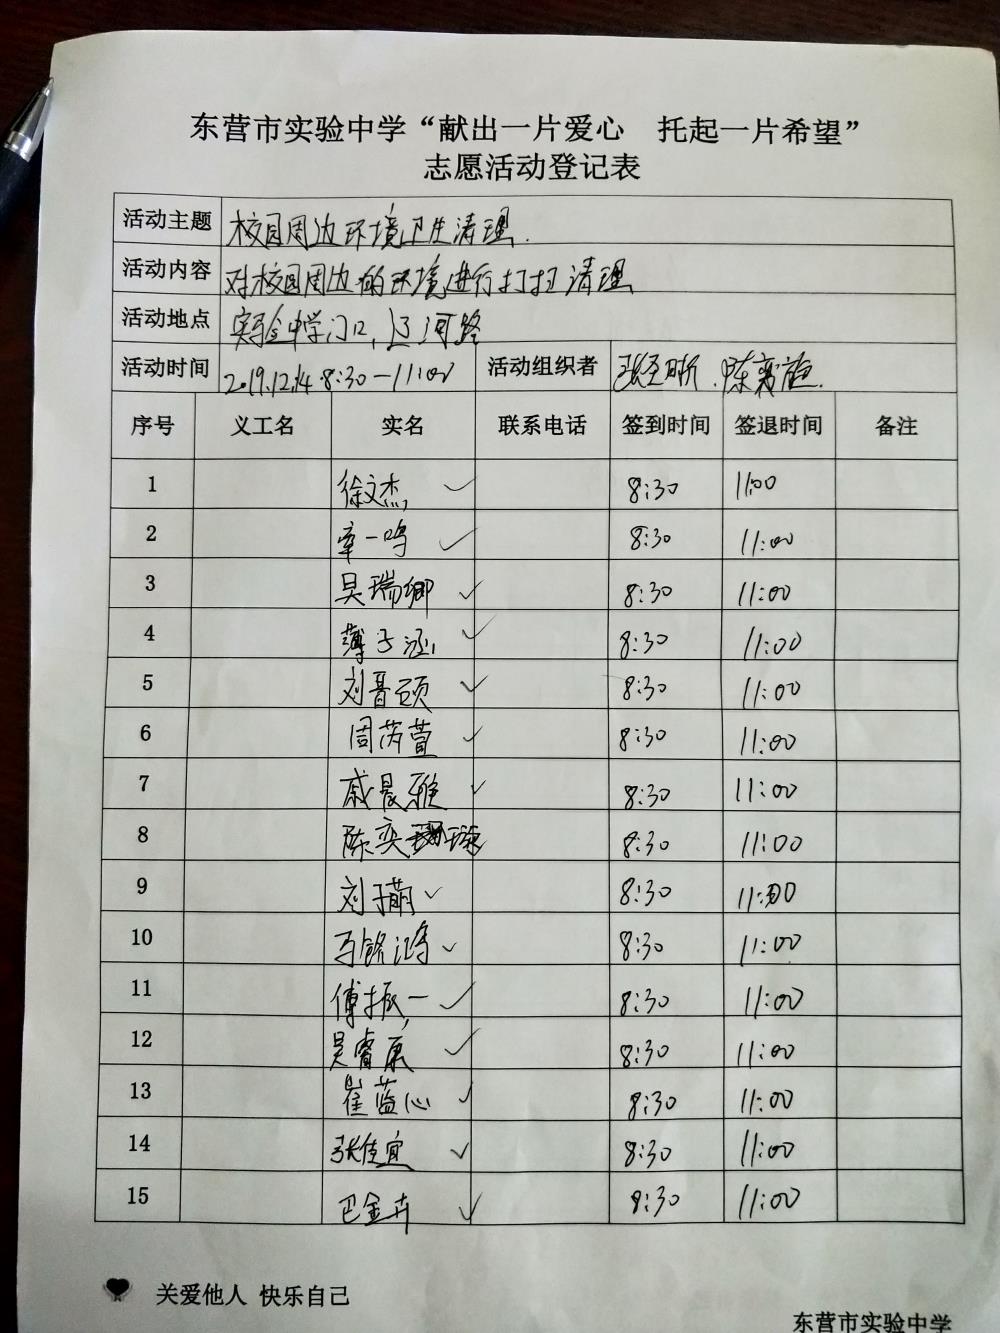 东营市实验中学“献出一片爱心 托起一片希望”
志愿活动登记表
活动主题 校园周边环境卫生清理.
活动内容 对校园周边的环境进行打扫清理
活动地点 实验中学门口,辽河路
活动时间 2019.12.14 8:30—11:00 活动组织者
序号 义工名 实名 联系电话 签到时间 签退时间 备注
1 徐文杰 8:30 11:00
2 一鸣 8:30 11:00
3 吴瑞卿 8:30 11:00
4 薄子涵 8:30 11:00
5 刘晋硕 8:30 11:00
6 周芮萱 8:30 11:00
7 戚晨雅 8:30 11:00
8 陈奕璇 8:30 11:00
9 刘子萌 8:30 11:00
10 马铭鸿 8:30 11:00
11 傅振一 8:30 11:00
12 吴睿康 8:30 11:00
13 崔蓝心 8:30 11:00
14 张佳宜 8:30 11:00
15 巴金卉 8:30 11:00
关爱他人 快乐自己
东营市实验中学